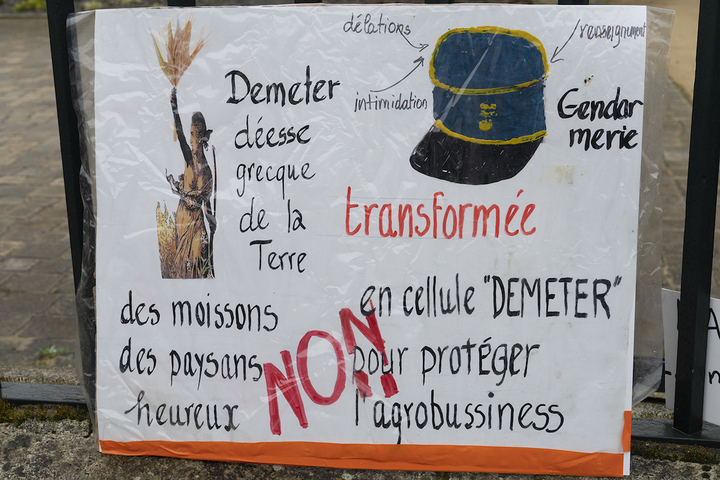 délations
renseignement
intimidation
Demeter
déesse
grecque
de la
Terre
Gendar
merie
transformée
des moissons
des paysans
heureux
NON!
en cellule "DEMETER"
pour protéger
l'agrobussiness